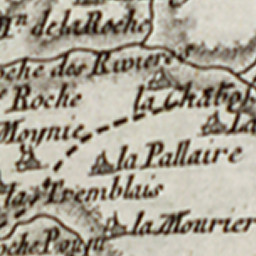 Mn de la Roche
oche des Rivieres
Roche
la Chabos
Moynie
la Pallaire
las Tremblais
la Mourier
oche Pouyu